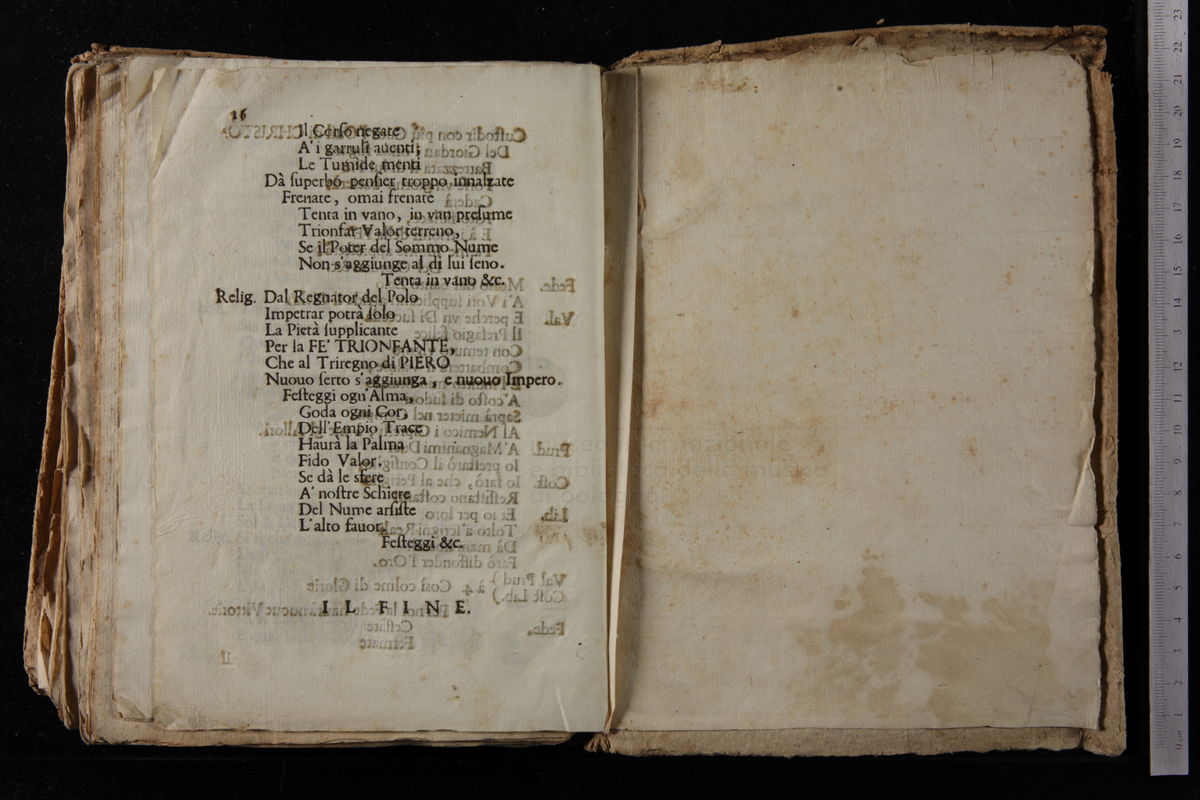 16
Il Corso negate
A' i garruli auenti;
Le Tumide menti
Dà superbo pensier troppo innalzate
Frenate, omai frenate
Tenta in vano, in van presume
Trionfar Valor terreno,
Se il Poter del Sommo Nume
Non s'aggiunge al di lui seno.
Tenta in vano &c.
Relig. Dal Regnator del Polo
Impetrar potrà solo
La Pietà supplicante
Per la FE' TRIONFANTE,
Che al Triregno di PIERO
Nuouo serto s'aggiunga, e nuouo Impero.
Festeggi ogn'Alma,
Goda ogni Cor,
Dell'Empio Trace
Haurà la Palma
Fido Valor;
Se dà le sfere
A' nostre Schiere
Del Nume arsiste
L'alto fauor.
Festeggi &c.
IL FINE.